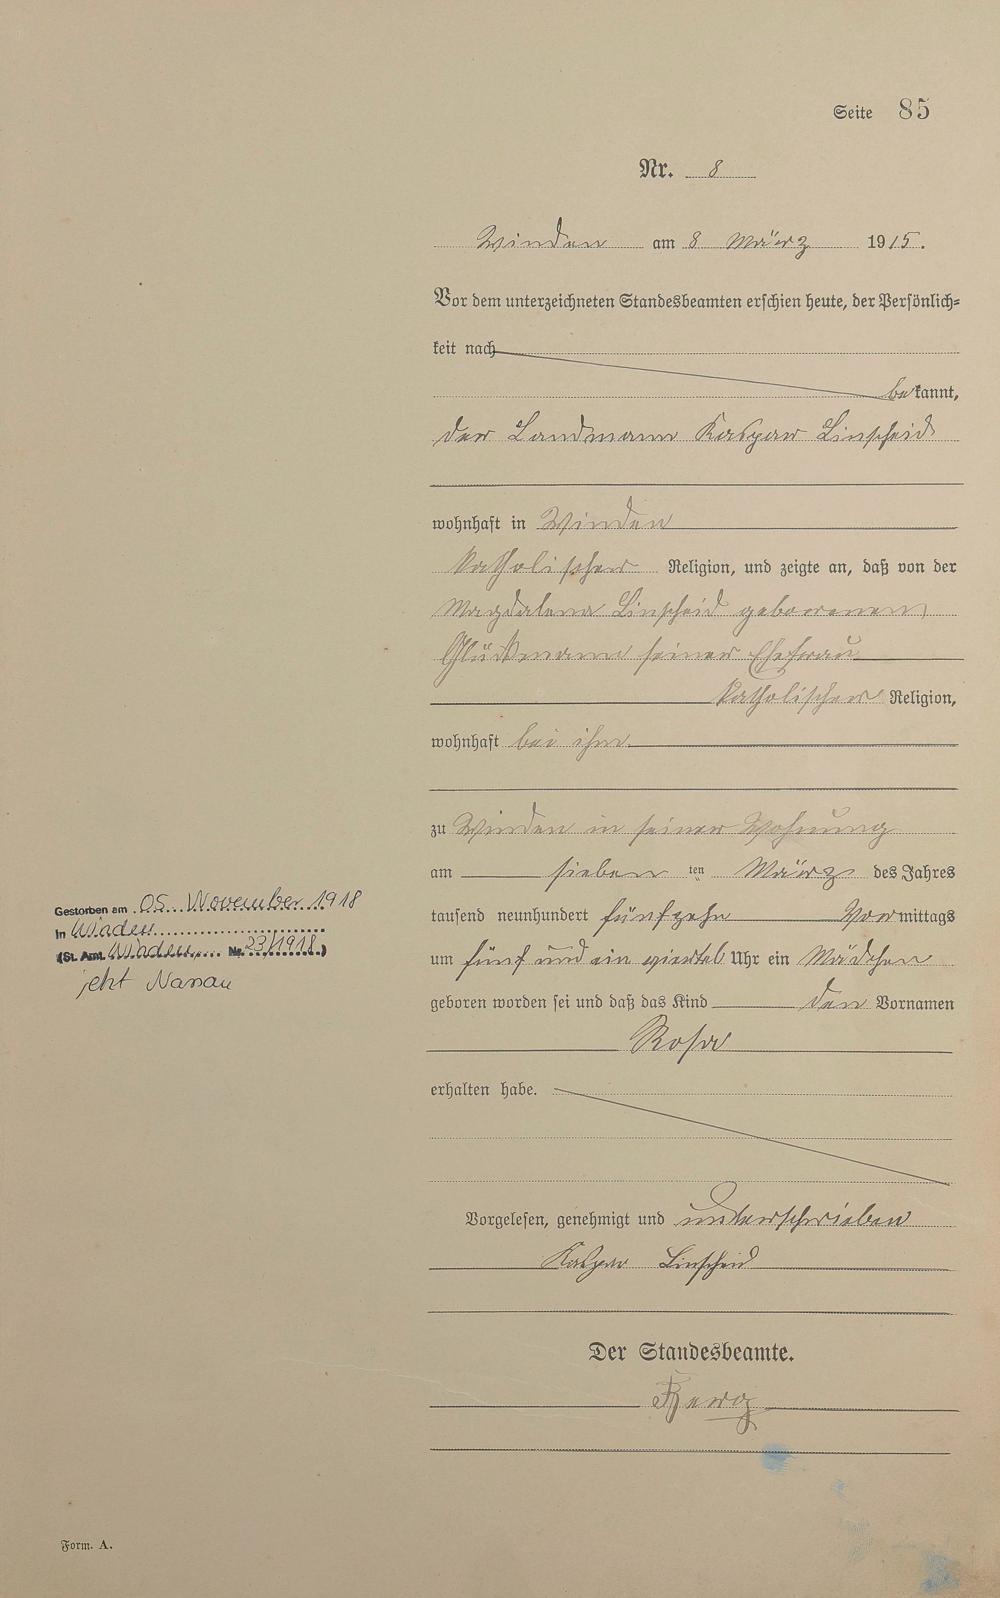 Seite 85
Nr. 8
Winden am 8 März 1915.
Vor dem unterzeichneten Standesbeamten erschien heute, der Persönlich=
keit nach
bekannt,
der Landmann Kaspar Linscheid
wohnhaft in Winden
katholischer Religion, und zeigte an, daß von der
Magdalena Linscheid geborenen
Glückmann seiner Ehefrau
katholischer Religion,
wohnhaft bei ihm
zu Winden in seiner Wohnung
am sieben ten März des Jahres
tausend neunhundert fünfzehn Vormittags
um fünf und ein viertel Uhr ein Mädchen
geboren worden sei und daß das Kind den Vornamen
Rosa
erhalten habe.
Gestorben am 05. November 1918
in Winden
(St. Amt. Winden Nr. 23/1918.)
jetzt Nassau
Vorgelesen, genehmigt und unterschrieben
Kaspar Linscheid
Der Standesbeamte.
Form. A.